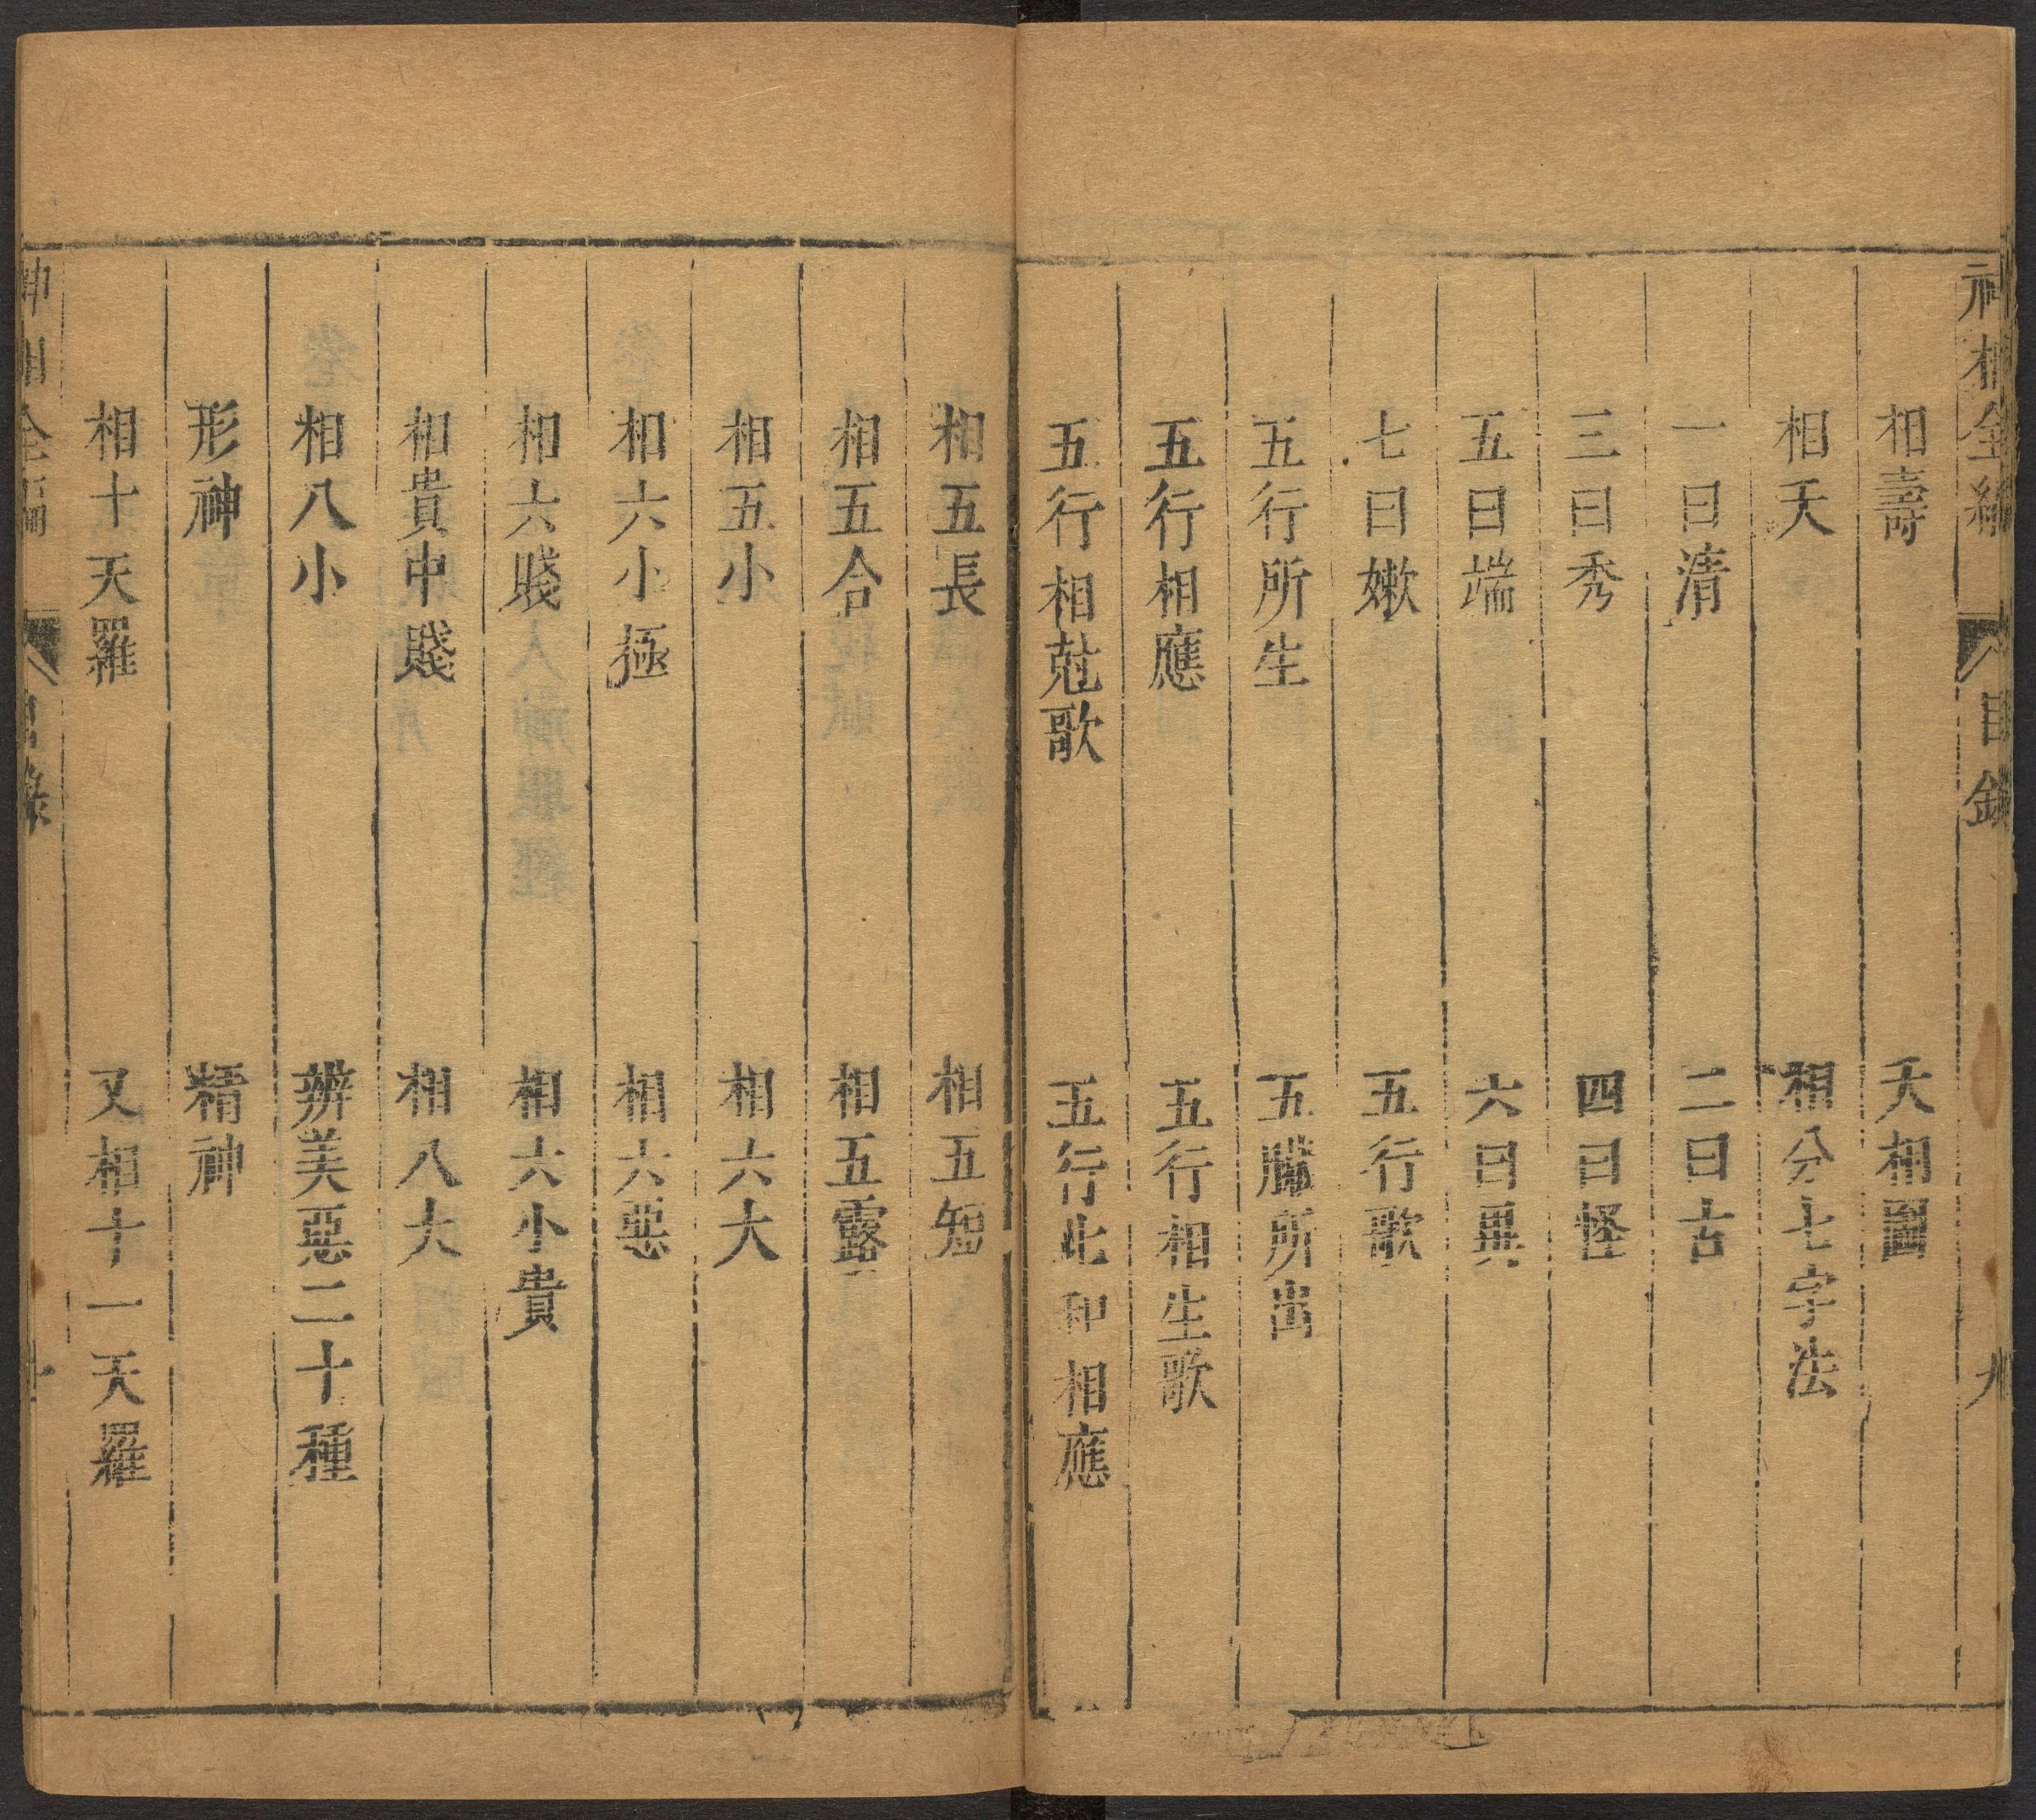 神相全編 目錄 九
相壽 夭相圖
相夭 相分七字法
一曰清 二曰古
三曰秀 四曰怪
五曰端 六曰異
七曰嫩 五行歌
五行所生 五臟所出
五行相應 五行相生歌
五行相尅歌 五行比和相應
相五長 相五短
相五合 相五露
相五小 相六大
相六小極 相六惡
相六賤 相六小貴
相貴中賤 相八大
相八小 辨美惡二十種
形神 精神
相十天羅 又相十一天羅
神相全編 目錄